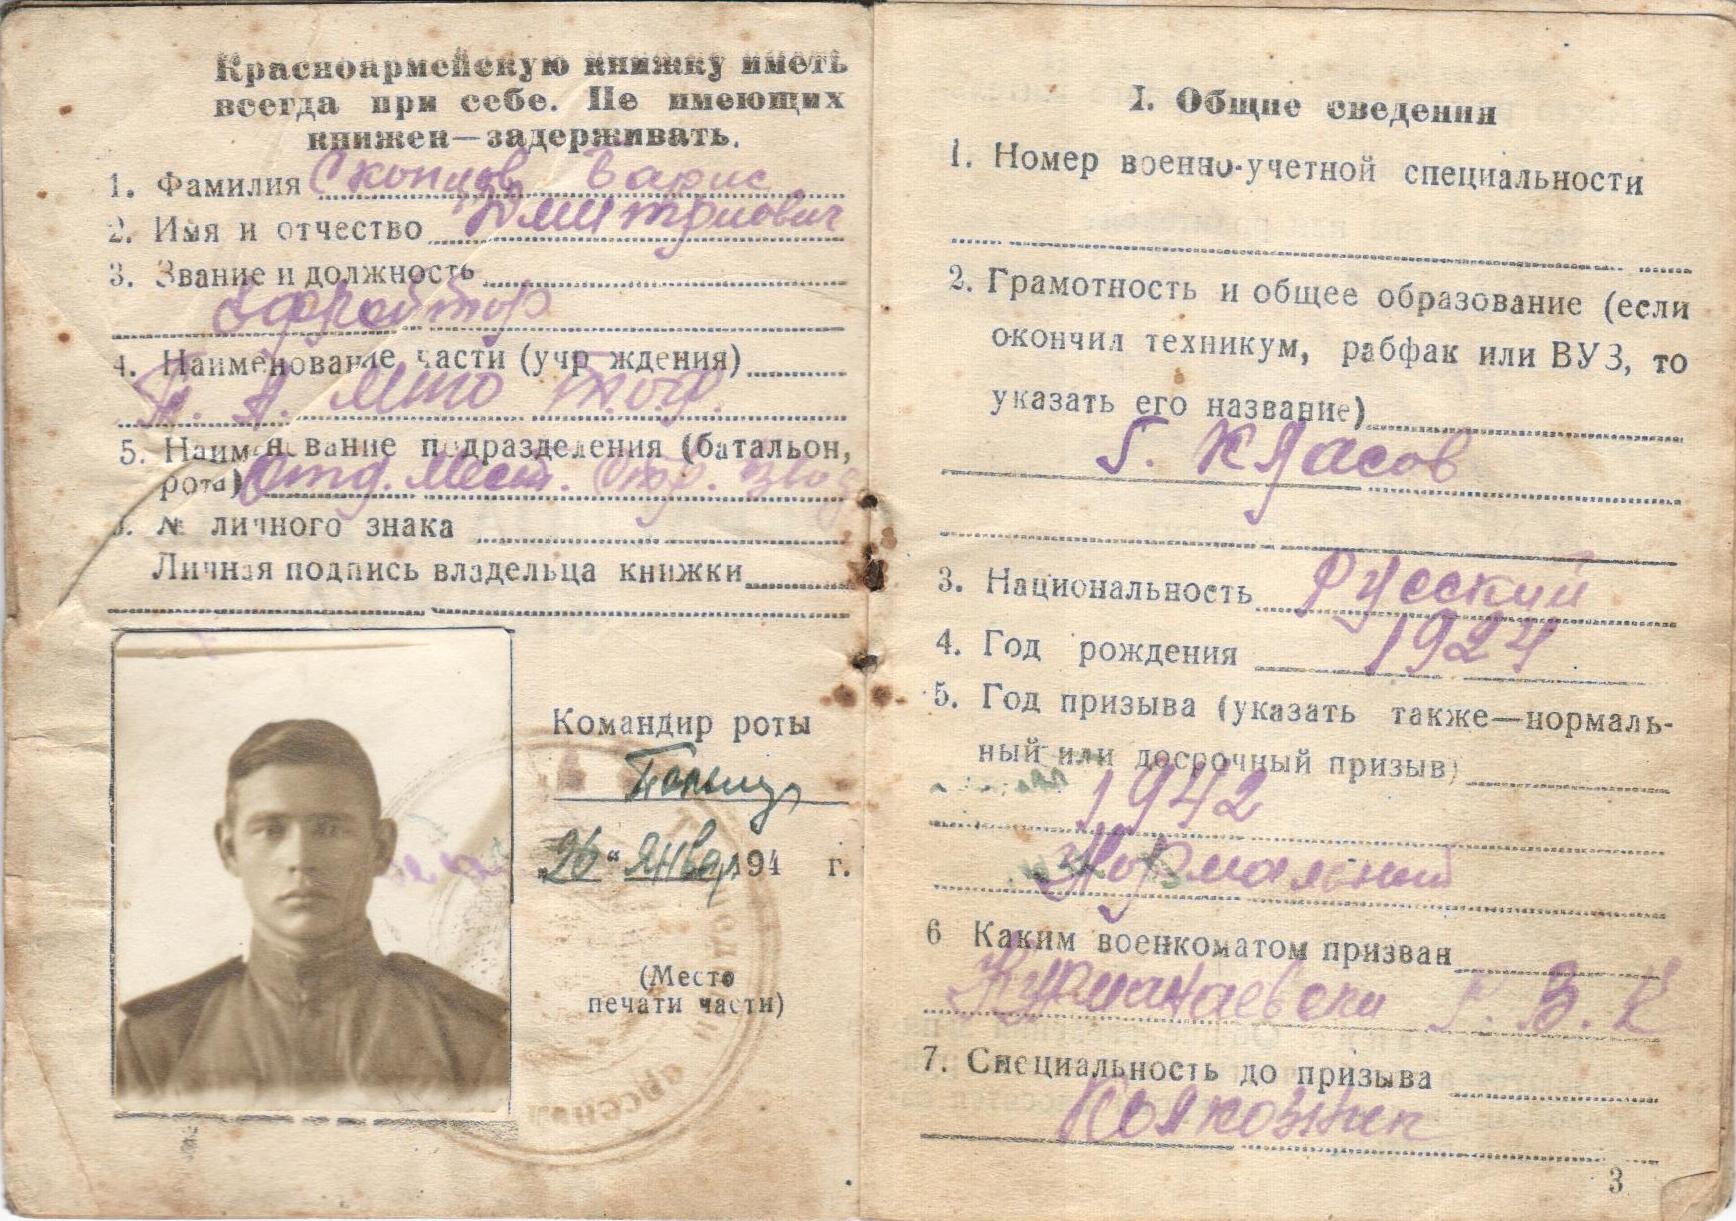 Красноармейскую книжку иметь
всегда при себе. Не имеющих
книжек—задерживать.
1. Фамилия Скопцов Барис
2. Имя и отчество Дмитриович
3. Звание и должность
Эфрейтор
4. Наименование части (учр ждения)
П. А. МТО Т.О.Ф.
5. Наименование подразделения (батальон,
рота) Отд. мест. стр. взвод
6. № личного знака
Личная подпись владельца книжки
Командир роты
„26“ Январ 194 г.
(Место
печати части)
арсенал
I. Общие сведения
1. Номер военно-учетной специальности
2. Грамотность и общее образование (если
окончил техникум, рабфак или ВУЗ, то
указать его название)
5. Классов
3. Национальность Русский
4. Год рождения 1924
5. Год призыва (указать также—нормаль-
ный или досрочный призыв)
1942
Нормальный
6 Каким военкоматом призван
Р. В. К
7. Специальность до призыва
Колхозник
3